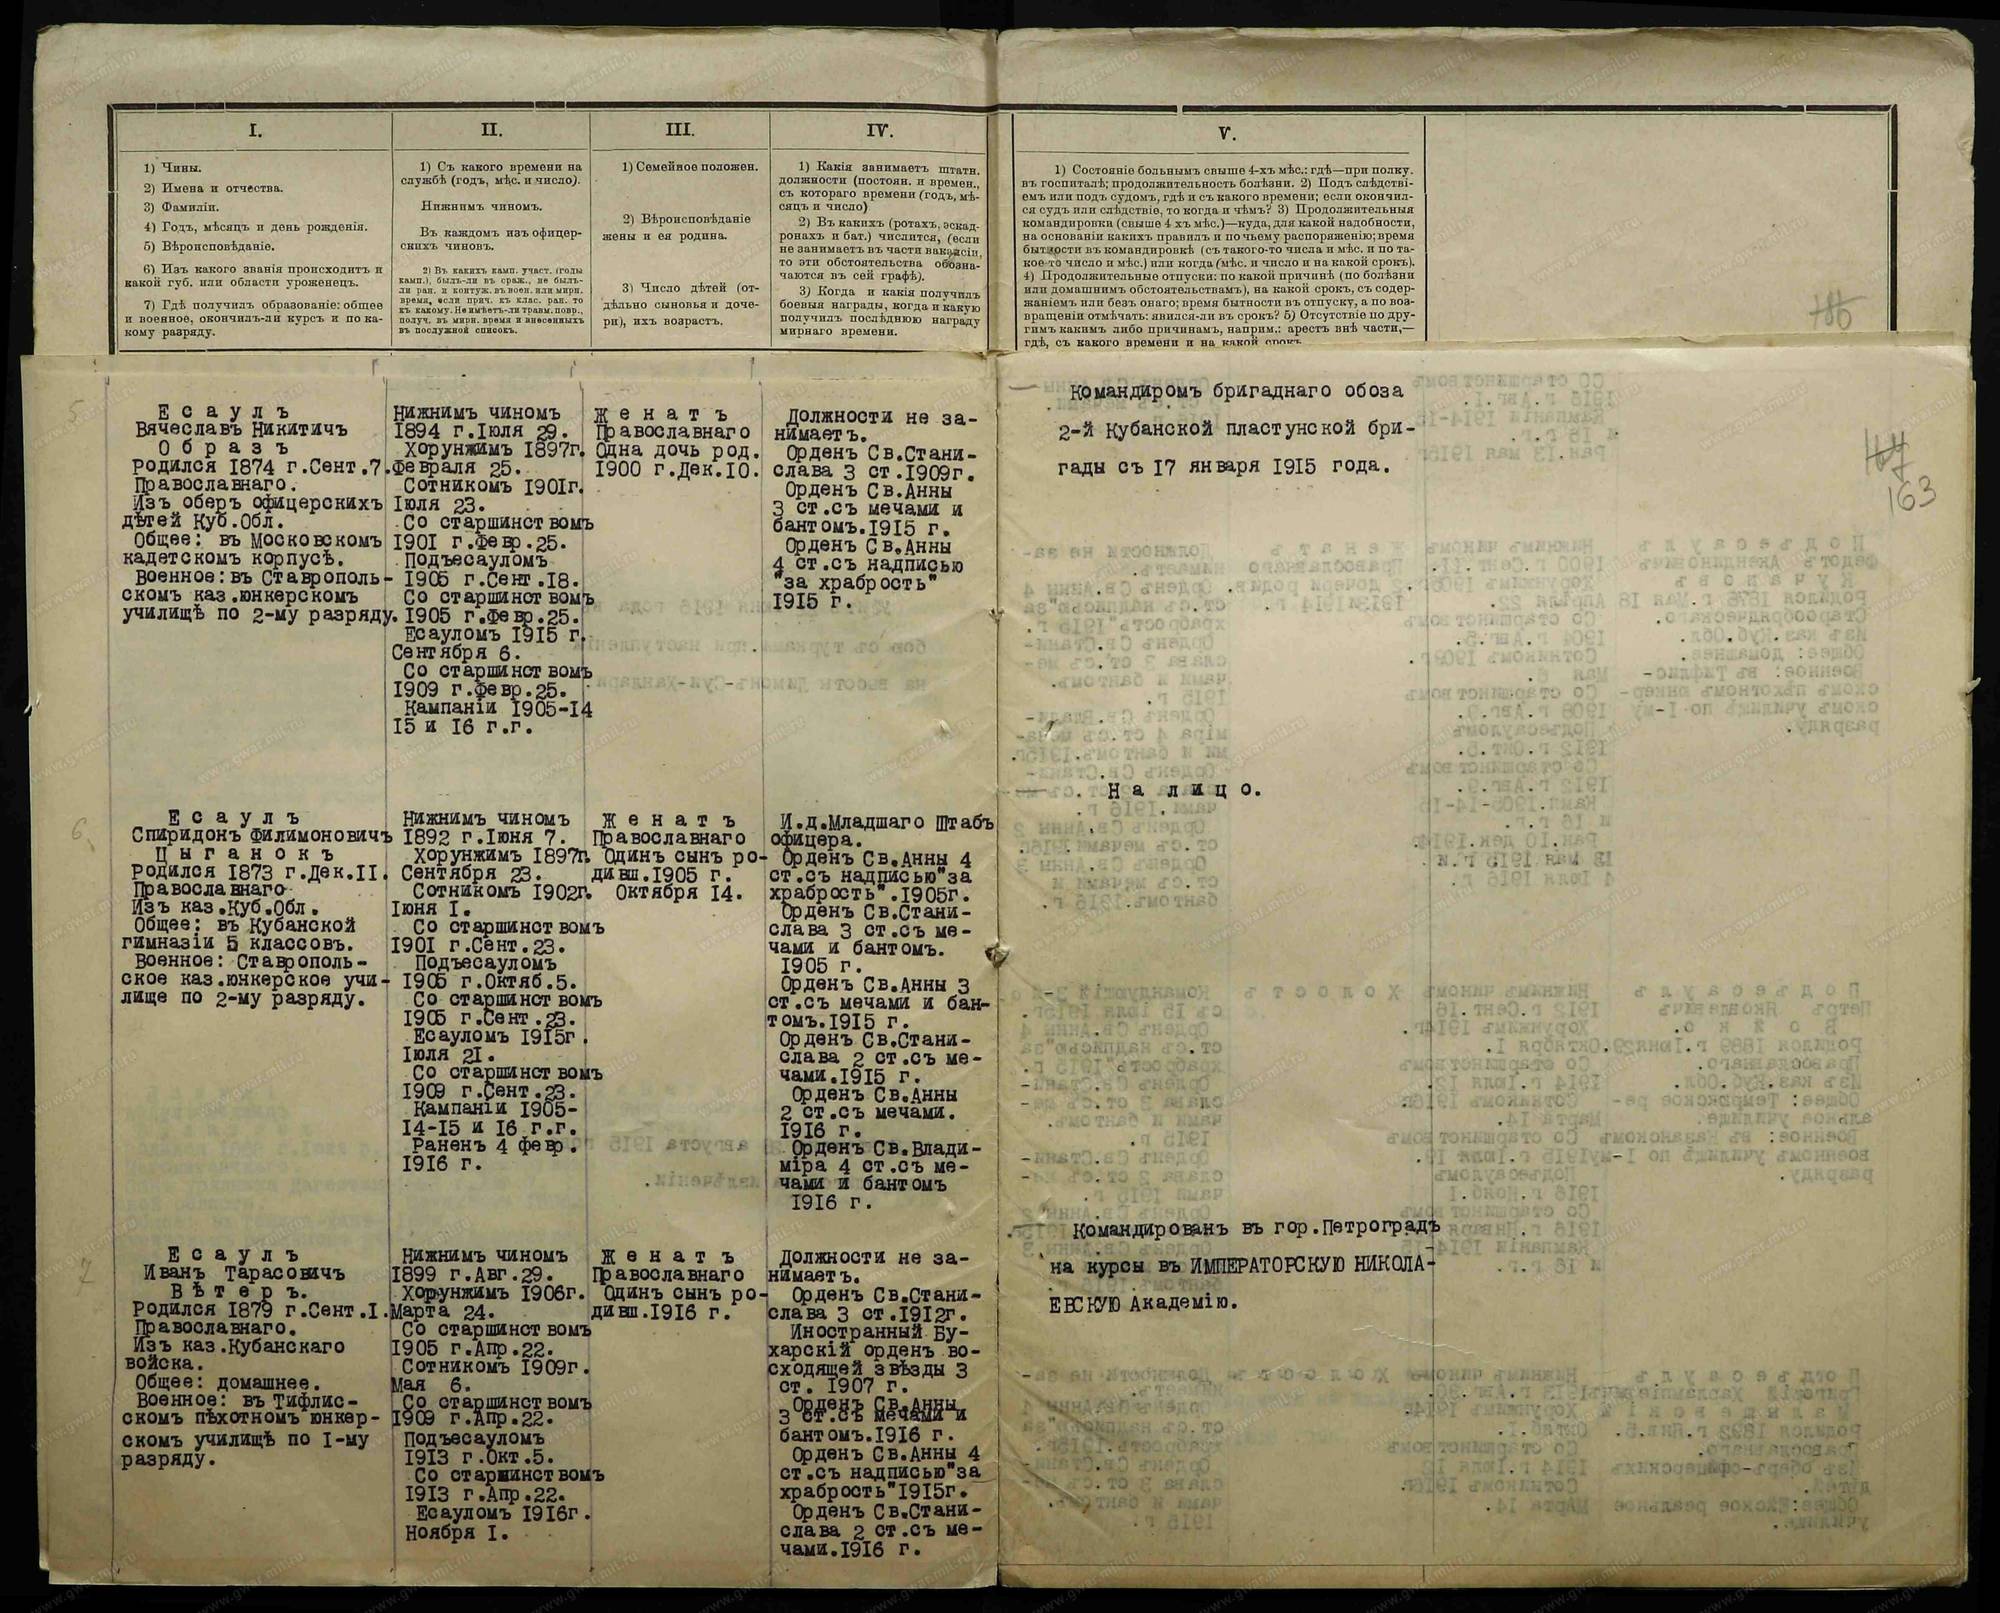 I.
1) Чины.
2) Имена и отчества.
3) Фамиліи.
4) Годъ, мѣсяцъ и день рожденія.
5) Вѣроисповѣданіе.
6) Изъ какого званія происходитъ и
какой губ. или области уроженецъ.
7) Гдѣ получилъ образованіе: общее
и военное, окончилъ-ли курсъ и по ка-
кому разряду.
II.
1) Съ какого времени на
службѣ (годъ, мѣс. и число).
Нижнимъ чиномъ.
Въ каждомъ изъ офицер-
скихъ чиновъ.
2) Въ какихъ камп. участ. (годы
камп.), былъ-ли въ сраж., не былъ-
ли ран. и контуж. въ воен. или мирн.
время, если прич. къ клас. ран. то
къ какому. Не имѣетъ-ли травм. повр.,
получ. въ мирн. время и внесенныхъ
въ послужной списокъ.
III.
1) Семейное положен.
2) Вѣроисповѣданіе
жены и ея родина.
3) Число дѣтей (от-
дѣльно сыновья и доче-
ри), ихъ возрастъ.
IV.
1) Какія занимаетъ штатн.
должности (постоян. и времен.,
съ котораго времени (годъ, мѣ-
сяцъ и число)
2) Въ какихъ (ротахъ, эскад-
ронахъ и бат.) числится, (если
не занимаетъ въ части вакансіи,
то эти обстоятельства обозна-
чаются въ сей графѣ).
3) Когда и какія получилъ
боевыя награды, когда и какую
получилъ послѣднюю награду
мирнаго времени.
V.
1) Состояніе больнымъ свыше 4-хъ мѣс.: гдѣ—при полку.
въ госпиталѣ; продолжительность болѣзни. 2) Подъ слѣдстві-
емъ или подъ судомъ, гдѣ и съ какого времени; если окончил-
ся судъ или слѣдствіе, то когда и чѣмъ? 3) Продолжительныя
командировки (свыше 4 хъ мѣс.)—куда, для какой надобности,
на основаніи какихъ правилъ и по чьему распоряженію; время
бытности въ командировкѣ (съ такого-то числа и мѣс. и по та-
кое-то число и мѣс.) или когда (мѣс. и число и на какой срокъ).
4) Продолжительные отпуски: по какой причинѣ (по болѣзни
или домашнимъ обстоятельствамъ), на какой срокъ, съ содер-
жаніемъ или безъ онаго; время бытности въ отпуску, а по воз-
вращеніи отмѣчать: явился-ли въ срокъ? 5) Отсутствіе по дру-
гимъ какимъ либо причинамъ, наприм.: арестъ внѣ части,—
гдѣ, съ какого времени и на какой срокъ
163
5
Есаулъ
Вячеславъ Никитичъ
Образъ
Родился 1874 г.Сент.7.
Православнаго.
Изъ оберъ офицерскихъ
дѣтей Куб.Обл.
Общее: въ Московскомъ
кадетскомъ корпусѣ.
Военное:въ Ставрополь-
скомъ каз.юнкерскомъ
училищѣ по 2-му разряду.
Нижнимъ чиномъ
1894 г.Іюля 29.
Хорунжимъ 1897г.
Февраля 25.
Сотникомъ 1901г.
Іюля 23.
Со старшинствомъ
1901 г.Февр.25.
Подъесауломъ
1905 г.Сент.18.
Со старшинствомъ
1905 г.Февр.25.
Есауломъ 1915 г.
Сентября 6.
Со старшинствомъ
1909 г.Февр.25.
Кампаніи 1905-14
15 и 16 г.г.
Женатъ
Православнаго
Одна дочь род.
1900 г.Дек.10.
Должности не за-
нимаетъ.
Орденъ Св.Стани-
слава 3 ст.1909г.
Орденъ Св.Анны
3 ст.съ мечами и
бантомъ.1915 г.
Орденъ Св.Анны
4 ст.съ надписью
"за храбрость"
1915 г.
Командиромъ бригаднаго обоза
2-й Кубанской пластунской бри-
гады съ 17 января 1915 года.
6
Есаулъ
Спиридонъ Филимоновичъ
Цыганокъ
Родился 1873 г.Дек.11.
Православнаго
Изъ каз.Куб.Обл.
Общее: въ Кубанской
гимназіи 5 классовъ.
Военное: Ставрополь-
ское каз.юнкерское учи-
лище по 2-му разряду.
Нижнимъ чиномъ
1892 г.Іюня 7.
Хорунжимъ 1897г.
Сентября 23.
Сотникомъ 1902г.
Іюня 1.
Со старшинствомъ
1901 г.Сент.23.
Подъесауломъ
1905 г.Октяб.5.
Со старшинствомъ
1905 г.Сент.23.
Есауломъ 1915г.
Іюля 21.
Со старшинствомъ
1909 г.Сент.23.
Кампаніи 1905-
14-15 и 16 г.г.
Раненъ 4 февр.
1916 г.
Женатъ
Православнаго
Одинъ сынъ ро-
дивш.1905 г.
Октября 14.
И.д.Младшаго Штабъ
офицера.
Орденъ Св.Анны 4
ст.съ надписью"за
храбрость".1905г.
Орденъ Св.Стани-
слава 3 ст.съ ме-
чами и бантомъ.
1905 г.
Орденъ Св.Анны 3
ст.съ мечами и бан-
томъ.1915 г.
Орденъ Св.Стани-
слава 2 ст.съ ме-
чами.1915 г.
Орденъ Св.Анны
2 ст.съ мечами.
1916 г.
Орденъ Св.Влади-
міра 4 ст.съ ме-
чами и бантомъ
1916 г.
На лицо.
7
Есаулъ
Иванъ Тарасовичъ
Вѣтеръ.
Родился 1879 г.Сент.1.
Православнаго.
Изъ каз.Кубанскаго
войска.
Общее: домашнее.
Военное: въ Тифлис-
скомъ пѣхотномъ юнкер-
скомъ училищѣ по 1-му
разряду.
Нижнимъ чиномъ
1899 г.Авг.29.
Хорунжимъ 1906г.
Марта 24.
Со старшинствомъ
1905 г.Апр.22.
Сотникомъ 1909г.
Мая 6.
Со старшинствомъ
1909 г.Апр.22.
Подъесауломъ
1913 г.Окт.5.
Со старшинствомъ
1913 г.Апр.22.
Есауломъ 1916г.
Ноября 1.
Женатъ
Православнаго
Одинъ сынъ ро-
дивш.1916 г.
Должности не за-
нимаетъ.
Орденъ Св.Стани-
слава 3 ст.1912г.
Иностранный Бу-
харскій орденъ во-
сходящей звѣзды 3
ст. 1907 г.
Орденъ Св.Анны
3 ст.съ мечами и
бантомъ.1916 г.
Орденъ Св.Анны 4
ст.съ надписью"за
храбрость"1915г.
Орденъ Св.Стани-
слава 2 ст.съ ме-
чами.1916 г.
Командированъ въ гор.Петроградъ
на курсы въ ИМПЕРАТОРСКУЮ НИКОЛА-
ЕВСКУЮ Академію.
www.gwar.mil.ru